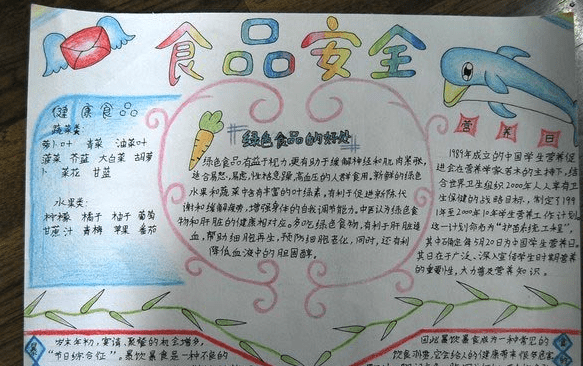 食品安全
健康食品
蔬菜类:
萝卜叶 青菜 油菜叶
菠菜 芥蓝 大白菜 胡萝
卜 菜花 甘蓝
水果类:
柠檬 橘子 柚子 葡萄
甘蔗汁 青梅 苹果 番茄
绿色食品的好处
绿色食品有益于视力,更有助于缓解神经和肌肉紧张,
适合易怒,易虑,性格急躁,高血压的人群食用,新鲜的绿色
水果和蔬菜中含有丰富的叶绿素,有利于促进新陈代
谢和缓解疲劳,增强身体的自我调节能力,中医认为绿色食
物和肝脏的健康相对应。多吃绿色食物,有利于肝脏造
血,帮助细胞再生,预防细胞老化,同时,还有利
降低血液中的胆固醇。
营养日
1989年成立的中国学生营养促
进会在营养学家 的主持下,结
合世界卫生组织2000年人人享有卫
生保健的战略目标,制定了199
1年至2000年10年学生营养工作计划
这一计划命名为“护苗系统工程”,
其中确定每5月20日为中国学生营养日。
其目在于广泛、深入宣传学生时期营养
的重要性,大力普及营养知识。
岁末年初,宴请、聚餐的机会增多,
“节日综合征”。暴饮暴食是一种不良的
因此暴饮暴食成为一种常见的
饮食习惯,它会给人的健康带来很多危害